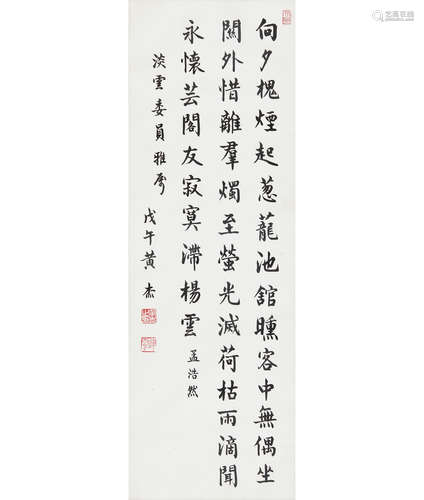 向夕槐煙起葱蘢池館曛客中無偶坐
關外惜離羣燭至螢光滅荷枯雨滴聞
永懷芸閣友寂寞滯楊雲 孟浩然
淡雲委員雅屬
戊午黃杰